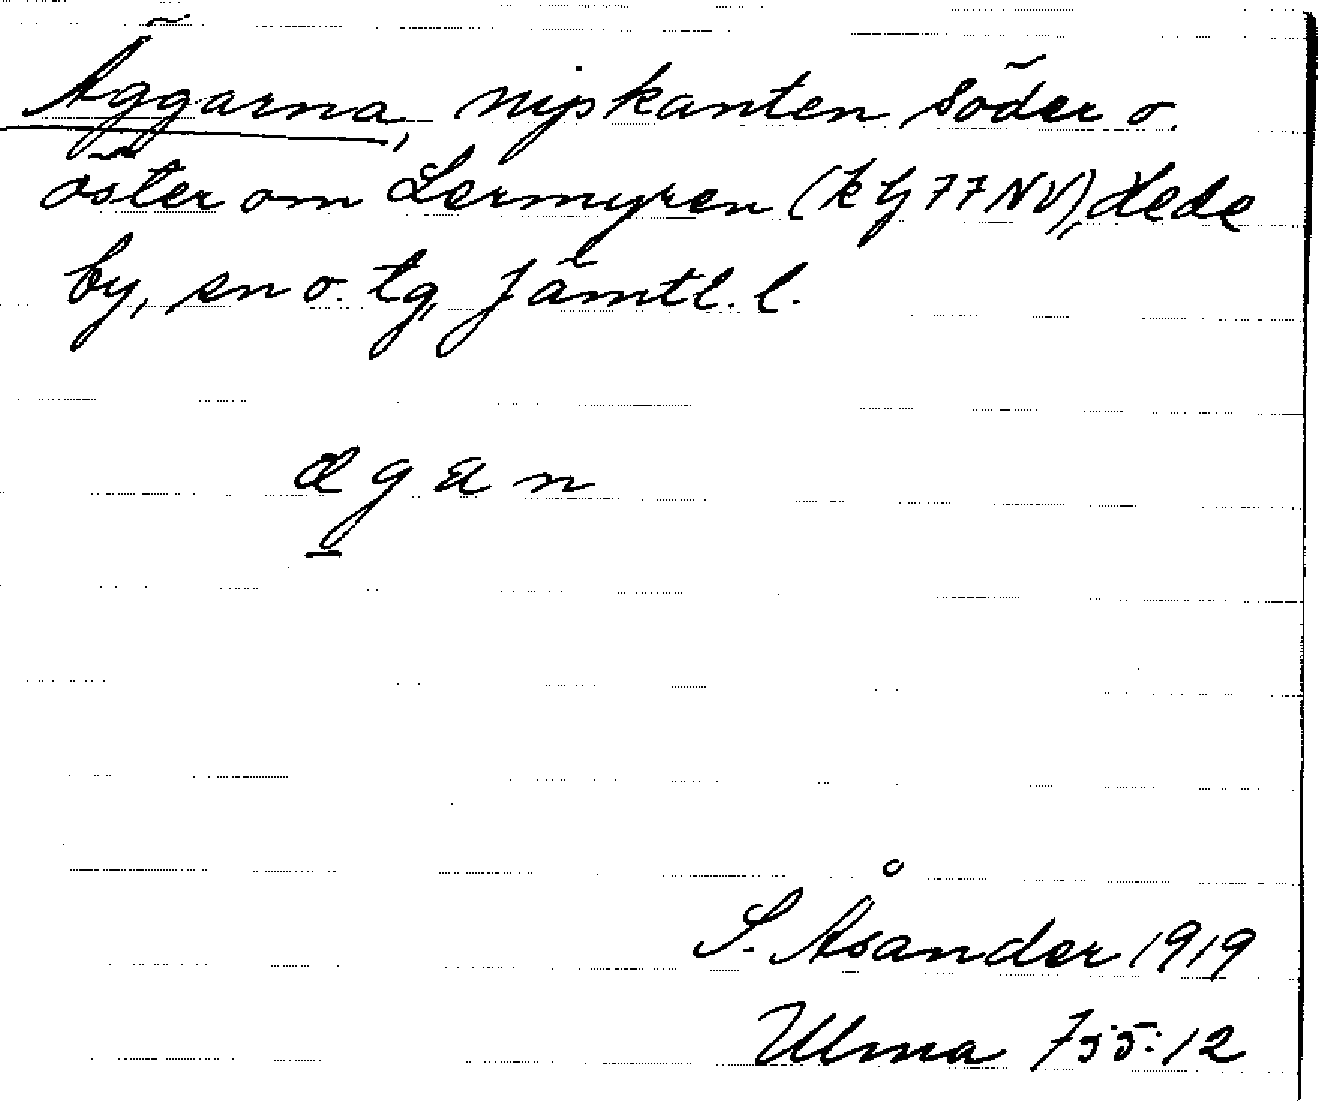 Äggarna, nipkanten söder o.
öster om Lermyren (k bj 77 NV), Hede
by, sn o. tg, Jämtl. l.
ægan
S. Åsander 1919
Ulma 755:12